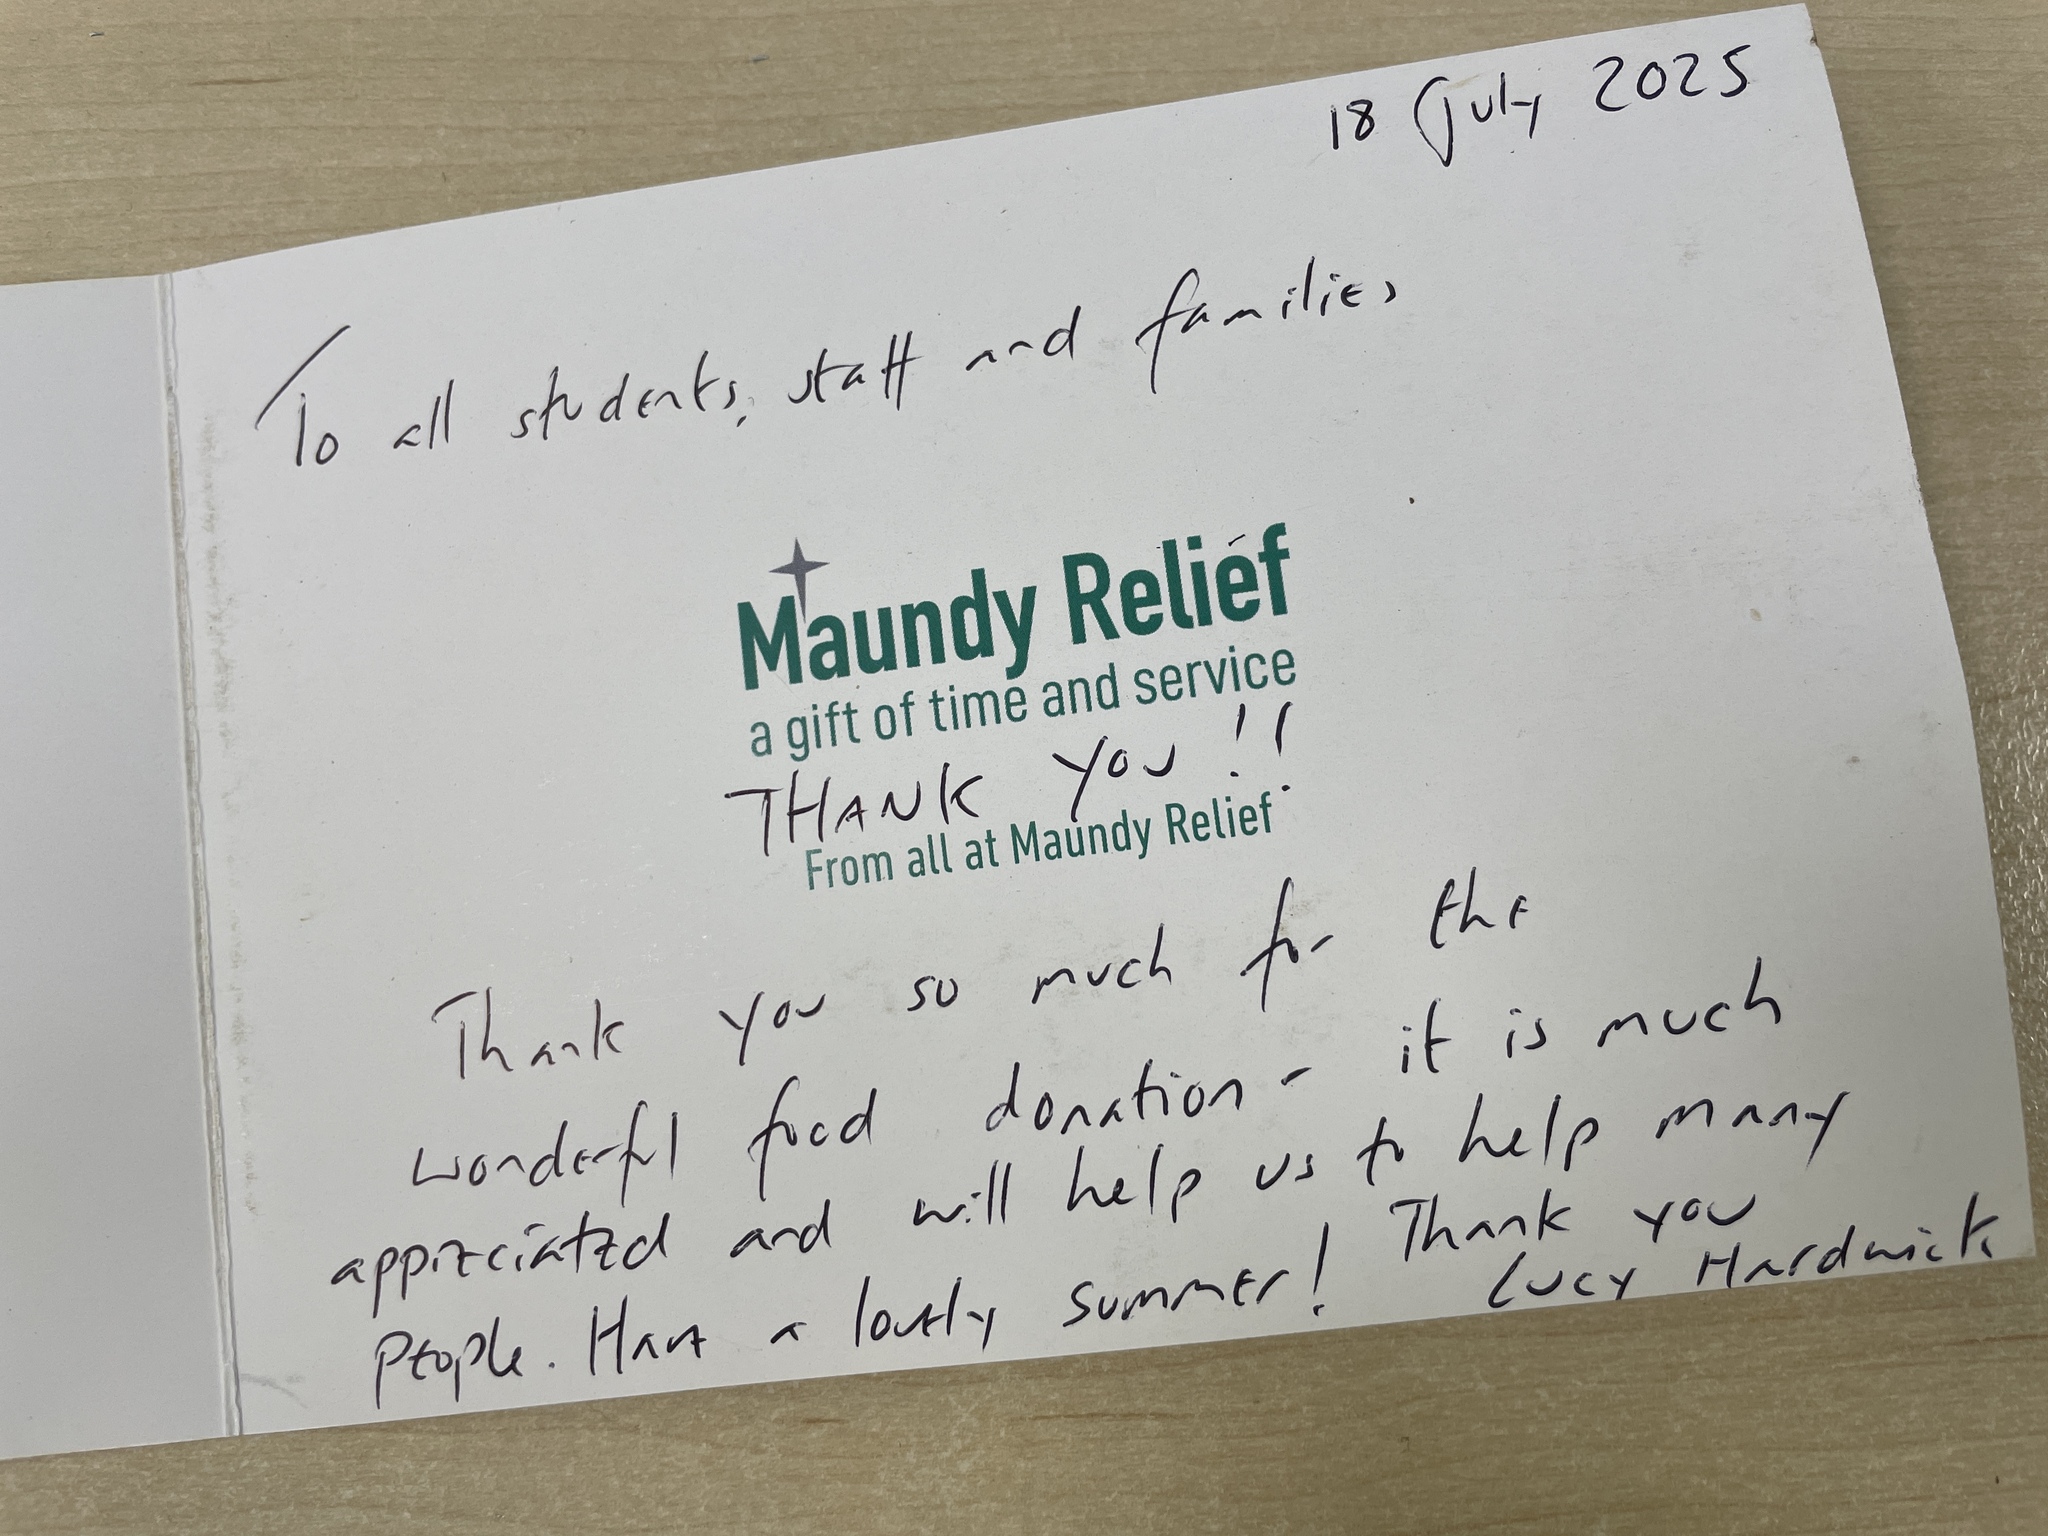 18 July 2025
To all students, staff and families
Maundy Relief
a gift of time and service
THANK YOU!!
From all at Maundy Relief
Thank you so much for the
wonderful food donation - it is much
appreciated and will help us to help many
people. Have a lovely summer! Thank you
Lucy Hardwick